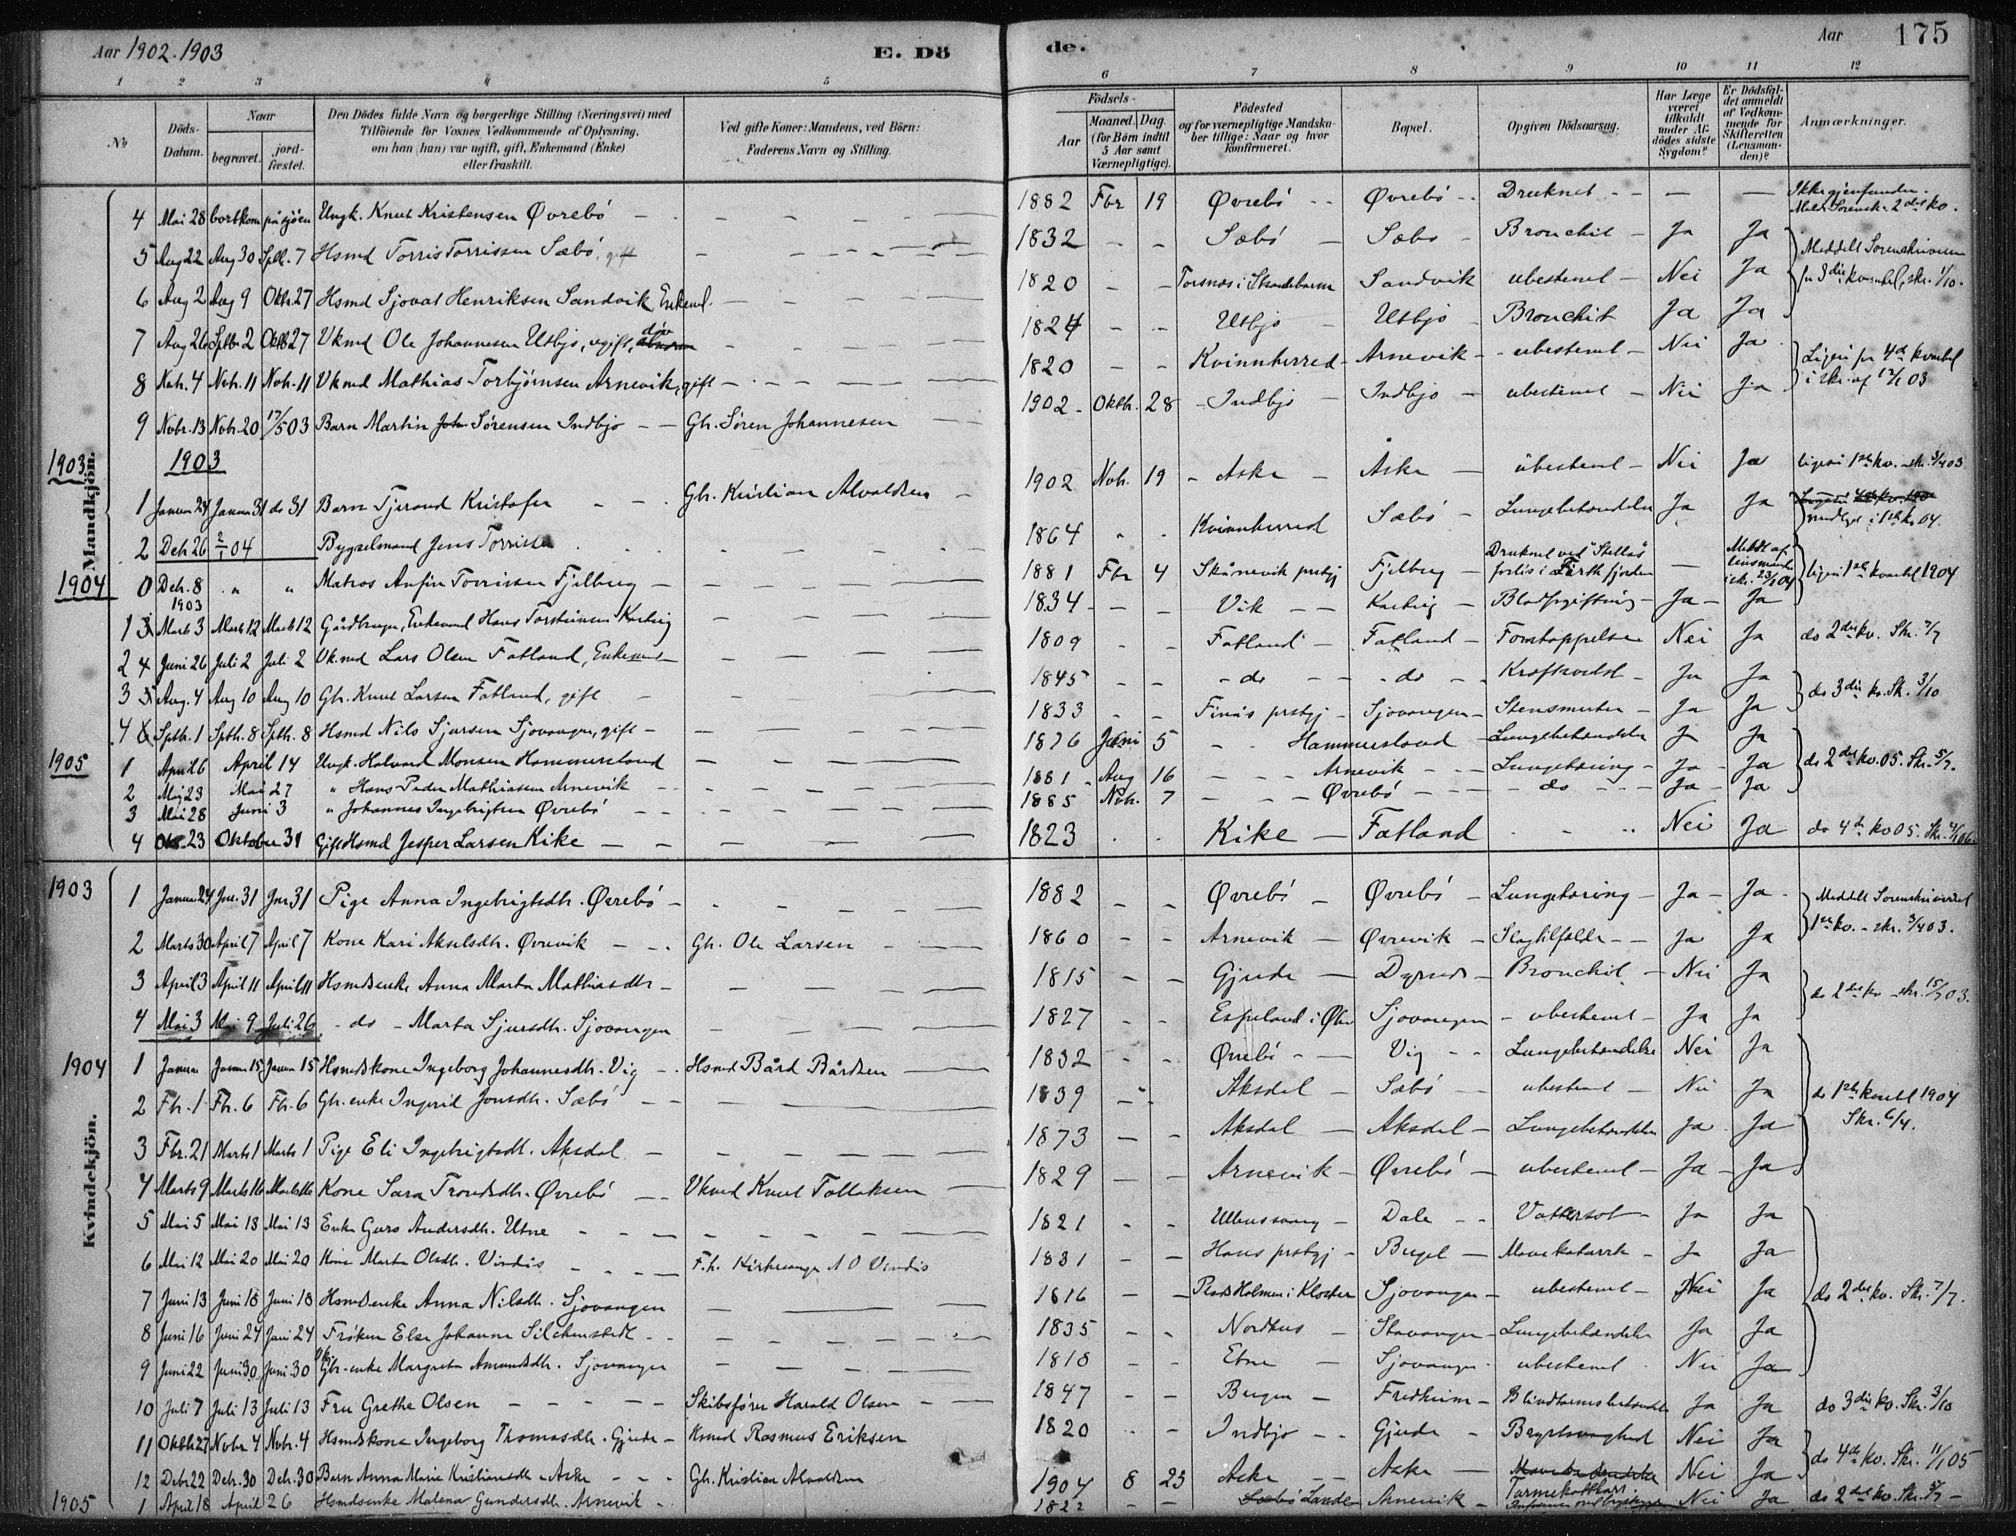 Aar 1902.1903
E. Dö
de.
Aar
175
1 2 3 4 5 6 7 8 9 10 11 12
№
Döds-Datum.
Naar
begravet.
jord-fæstet.
Den Dödes fulde Navn og borgerlige Stilling (Næringsvei) med
Tilföiende for Voxnes Vedkommende af Oplysning.
om han (hun) var ugift, gift, Enkemand (Enke)
eller fraskilt.
Ved gifte Koner: Mandens, ved Börn:
Faderens Navn og Stilling.
Födsels-
Aar
Maaned. Dag.
(for Börn indtil
5 Aar samt
Værnepligtige).
Födested
og for værnepligtige Mandska-
ber tillige: Naar og hvor
konfirmeret.
Bopæl.
Opgiven Dödsaarsag.
Har Læge
været
tilkaldt
under Af-
dödes sidste
Sygdom?
Er Dödsfal-
det anmeldt
af Vedkom-
mende for
Skifteretten
(Lensman-
den)?
Anmærkninger.
Mandkjön.
4 Mai 28 bortkom på sjøen Ungk. Knut Kristensen Øvrebö 1882 Fbr 19 Øvrebö Øvrebö Druknet — — Ikke gjenfunden.
5 Aug 22 Aug 30 Sptb. 7 Hsmd Torris Torrissen Sæbö, gift 1832 Sæbö Sæbö Bronchit Ja Ja
6 Aug 2 Aug 9 Oktb. 27 Hsmd Sjovat Henriksen Sandvik Enkem. 1820 Torsnes i Strandebarm Sandvik ubestemt Nei Ja
7 Aug 26 Sptbr 2 Oktb 27 Vkmd Ole Johannesen Utbjo, ugift, døv 1824 Utbjo Utbjo Bronchit Ja Ja
8 Nob. 4 Nob. 11 Nob. 11 Vkmd Mathias Torbjörnsen Arnevik, gift 1820 Kvinnherred Arnevik ubestemt Nei Ja
9 Nobr. 13 Nob. 20 17/5 03 Barn Martin Sörensen Indbjo Gbr. Sören Johannesen 1902 Oktb. 28 Indbjo Indbjo ubestemt Nei Ja
1903 1903
1 Januar 24 Januar 31 do 31 Barn Tjerand Kristofer Gbr. Kristian Alvaldsen 1902 Nob. 19 Aske Aske ubestemt Nei Ja
2 Deb 26 2/1 04 Bygselmand Jens Torrissen 1864 Kvinnherred Sæbö Lungebetændelse Ja Ja
1904 0 Deb. 8 " " Matros Anfin Torrissen Fjelberg 1881 Fbr 4 Skånevik prstgj Fjelberg
1903
1 3 Mart 3 Marts 12 Marts 12 Gårdbruger, Enkemand Hans Torsteinsen 1834 Vik Blodforgiftning Ja Ja
2 4 Juni 26 Juli 2 Juli 2 Vkmd Lars Olsen Fatland, Enkemand 1809 Fatland Fatland Forstoppelse Nei Ja do 2det kv. Skr. 7/7
3 5 Aug. 4 Aug 10 Aug 10 Gbr. Knut Larsen Fatland, gift 1845 do do Kræftsvulst Ja Ja do 3die kv. Sk. 3/10
4 6 Sptb. 1 Sptb. 8 Sptb. 8 Hsmd Nils Sjursen Sjovangen, gift 1833 Finås prstgj Sjovangen Stensmerter Ja Ja
1905 1 April 6 April 14 Ungk. Halvard Monsen Hammersland 1876 Juni 5 Hammersland Lungebetændelse Ja Ja
2 Mai 23 Mai 27 " Hans Peder Mathiasen Arnevik 1881 Aug 16 Arnevik Lungetæring Ja Ja do 2det kv. 05. Skr. 5/7.
3 Mai 28 Juni 3 " Johannes Ingebrigtsen Övrebö 1885 Nvb. 7 Øvrebö do Ja Ja
4 Okt. 23 Oktober 31 Gift Hsmd Jesper Larsen Kike 1823 Kike Fatland Nei Ja do 4de kv 05.
Kvindekjön.
1903 1 Januar 24 Jnr. 31 Jnr 31 Pige Anna Ingebrigtsdtr. Øvrebö 1882 Øvrebö Øvrebö Lungetæring Ja Ja
2 Marts 30 April 7 April 7 Kone Kari Akselsdtr. Øvrevik Gbr. Ole Larsen 1860 Arnevik Øvrevik Slagtilfælde Ja Ja
3 April 3 April 11 April 11 Hsmdsenke Anna Marta Mathiasdtr 1815 Gjerde Bronchit Nei Ja
4 Mai 3 Mai 9 Juli 26 do Marta Sjursdtr. Sjovangen 1827 Espeland i Ølen Sjovangen ubestemt Ja Ja do 2det kv skr. 15/7 03.
1904 1 Januar Januar 15 Januar 15 Hsmdskone Ingeborg Johannesdtr. Vig Hsmd Bård Bårdsen 1832 Øvrebö Vig Lungebetændelse Nei Ja
2 Fbr. 1 Fb. 6 Fb. 6 Gbr. enke Ingrid Jonsdtr. Sæbö 1839 Aksdal Sæbö ubestemt Nei Ja do 1ste kvartal 1904
Skr. 6/4.
3 Fbr. 21 Marts 1 Marts 1 Pige Eli Ingebrigtsdtr. Aksdal 1873 Aksdal Aksdal Lungebetændelse Ja Ja
4 Marts 9 Marts 16 Marts 16 Kone Sara Trondsdtr. Øvrebö Vkmd Knut Tollaksen 1829 Arnevik Øvrebö ubestemt Ja Ja
5 Mai 5 Mai 13 Mai 13 Enke Guro Andersdtr. Utne 1821 Ullensvang Dale Vattersot Ja Ja
6 Mai 12 Mai 20 Mai 20 Kone Marta Olsdtr. Vindis F.h. Kirkesanger A O Vindis 1831 Haus prstgj Mavekatarrh Ja Ja
7 Juni 13 Juni 18 Juni 18 Hsmdsenke Anna Nilsdtr. Sjovangen 1816 Plads Holmen i Kloster Sjovangen ubestemt Nei Ja do 2det kv. Skr. 7/7.
8 Juni 16 Juni 24 Juni 24 Fröken Else Johanne Silchenstedt 1835 Nordhus Stavanger Lungebetændelse Ja Ja
9 Juni 22 Juni 30 Juni 30 Gbr. enke Margreta Amundsdtr. Sjovangen 1818 Etne Sjovangen ubestemt Nei Ja
10 Juli 7 Juli 13 Juli 13 Fru Grethe Olsen Skibsförer Harald Olsen 1847 Bergen Fredheim Blindtarmsbetændelse Ja Ja do 3die kv. Skr. 3/10
11 Oktb 27 Nobr. 4 Nobr. 4 Hsmdskone Ingeborg Thomasdtr. Gjerde Kmd Rasmus Eriksen 1820 Indbjo Gjerde Brystsvaghed Nei Ja
12 Debr 22 Deb. 30 Deb. 30 Barn Anna Marie Kristiansdtr Aske Gbr. Kristian Alvaldsen 1904 8 23 Aske Aske Tarmekatharr Nei Ja do 4de kv. Skr. 11/1 05
1905 1 April 18 April 26 Hsmdsenke Malena Gundersdtr. Arnevik 1822 Lande Arnevik Nei Ja do 2det kv. Skr. 5/7